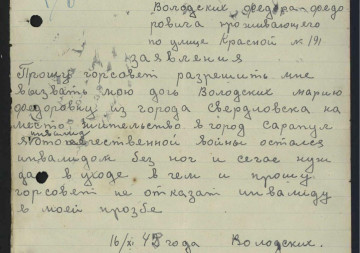 Володских федора федо
ровича проживающего
по улице Красной № 191
заявления
Прошу горсовет разрешить мне
вызвать мою дочь Володских марию
федоровну из города Свердловска на
место жительство в город Сарапул
я инвалид отечественной войны остался
инвалидом без ног и сегас нуж
даюсь в уходе в чем и прошу
горсовет не отказат инвалиду
в моей прозбе
16/XI 43 года Володских.